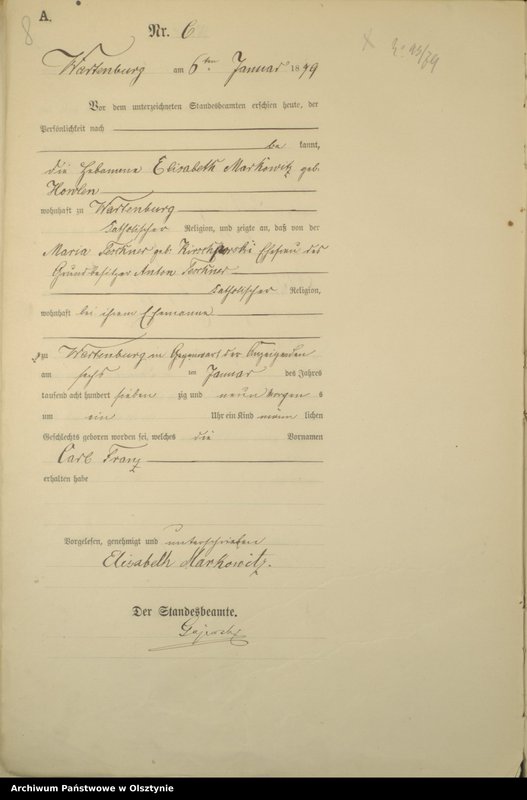 A.
8
Nr. 6
Wartenburg am 6ten Januar 1879
Vor dem unterzeichneten Standesbeamten erschien heute, der
Persönlichkeit nach
be kannt,
die Hebamme Elisabeth Markowitz geb.
wohnhaft zu Wartenburg
katholischer Religion, und zeigte an, daß von der
Maria geb. Ehefrau des
Grundbesitzer Anton
katholischer Religion,
wohnhaft bei ihrem Ehemanne
zu Wartenburg in Gegenwart der Anzeigenden
am sechs ten Januar des Jahres
tausend acht hundert sieben zig und neun Morgen s
um ein Uhr ein Kind männ lichen
Geschlechts geboren worden sei, welches die Vornamen
Carl Franz
erhalten habe
Vorgelesen, genehmigt und unterschrieben
Elisabeth Markowitz.
Der Standesbeamte.
Archiwum Państwowe w Olsztynie